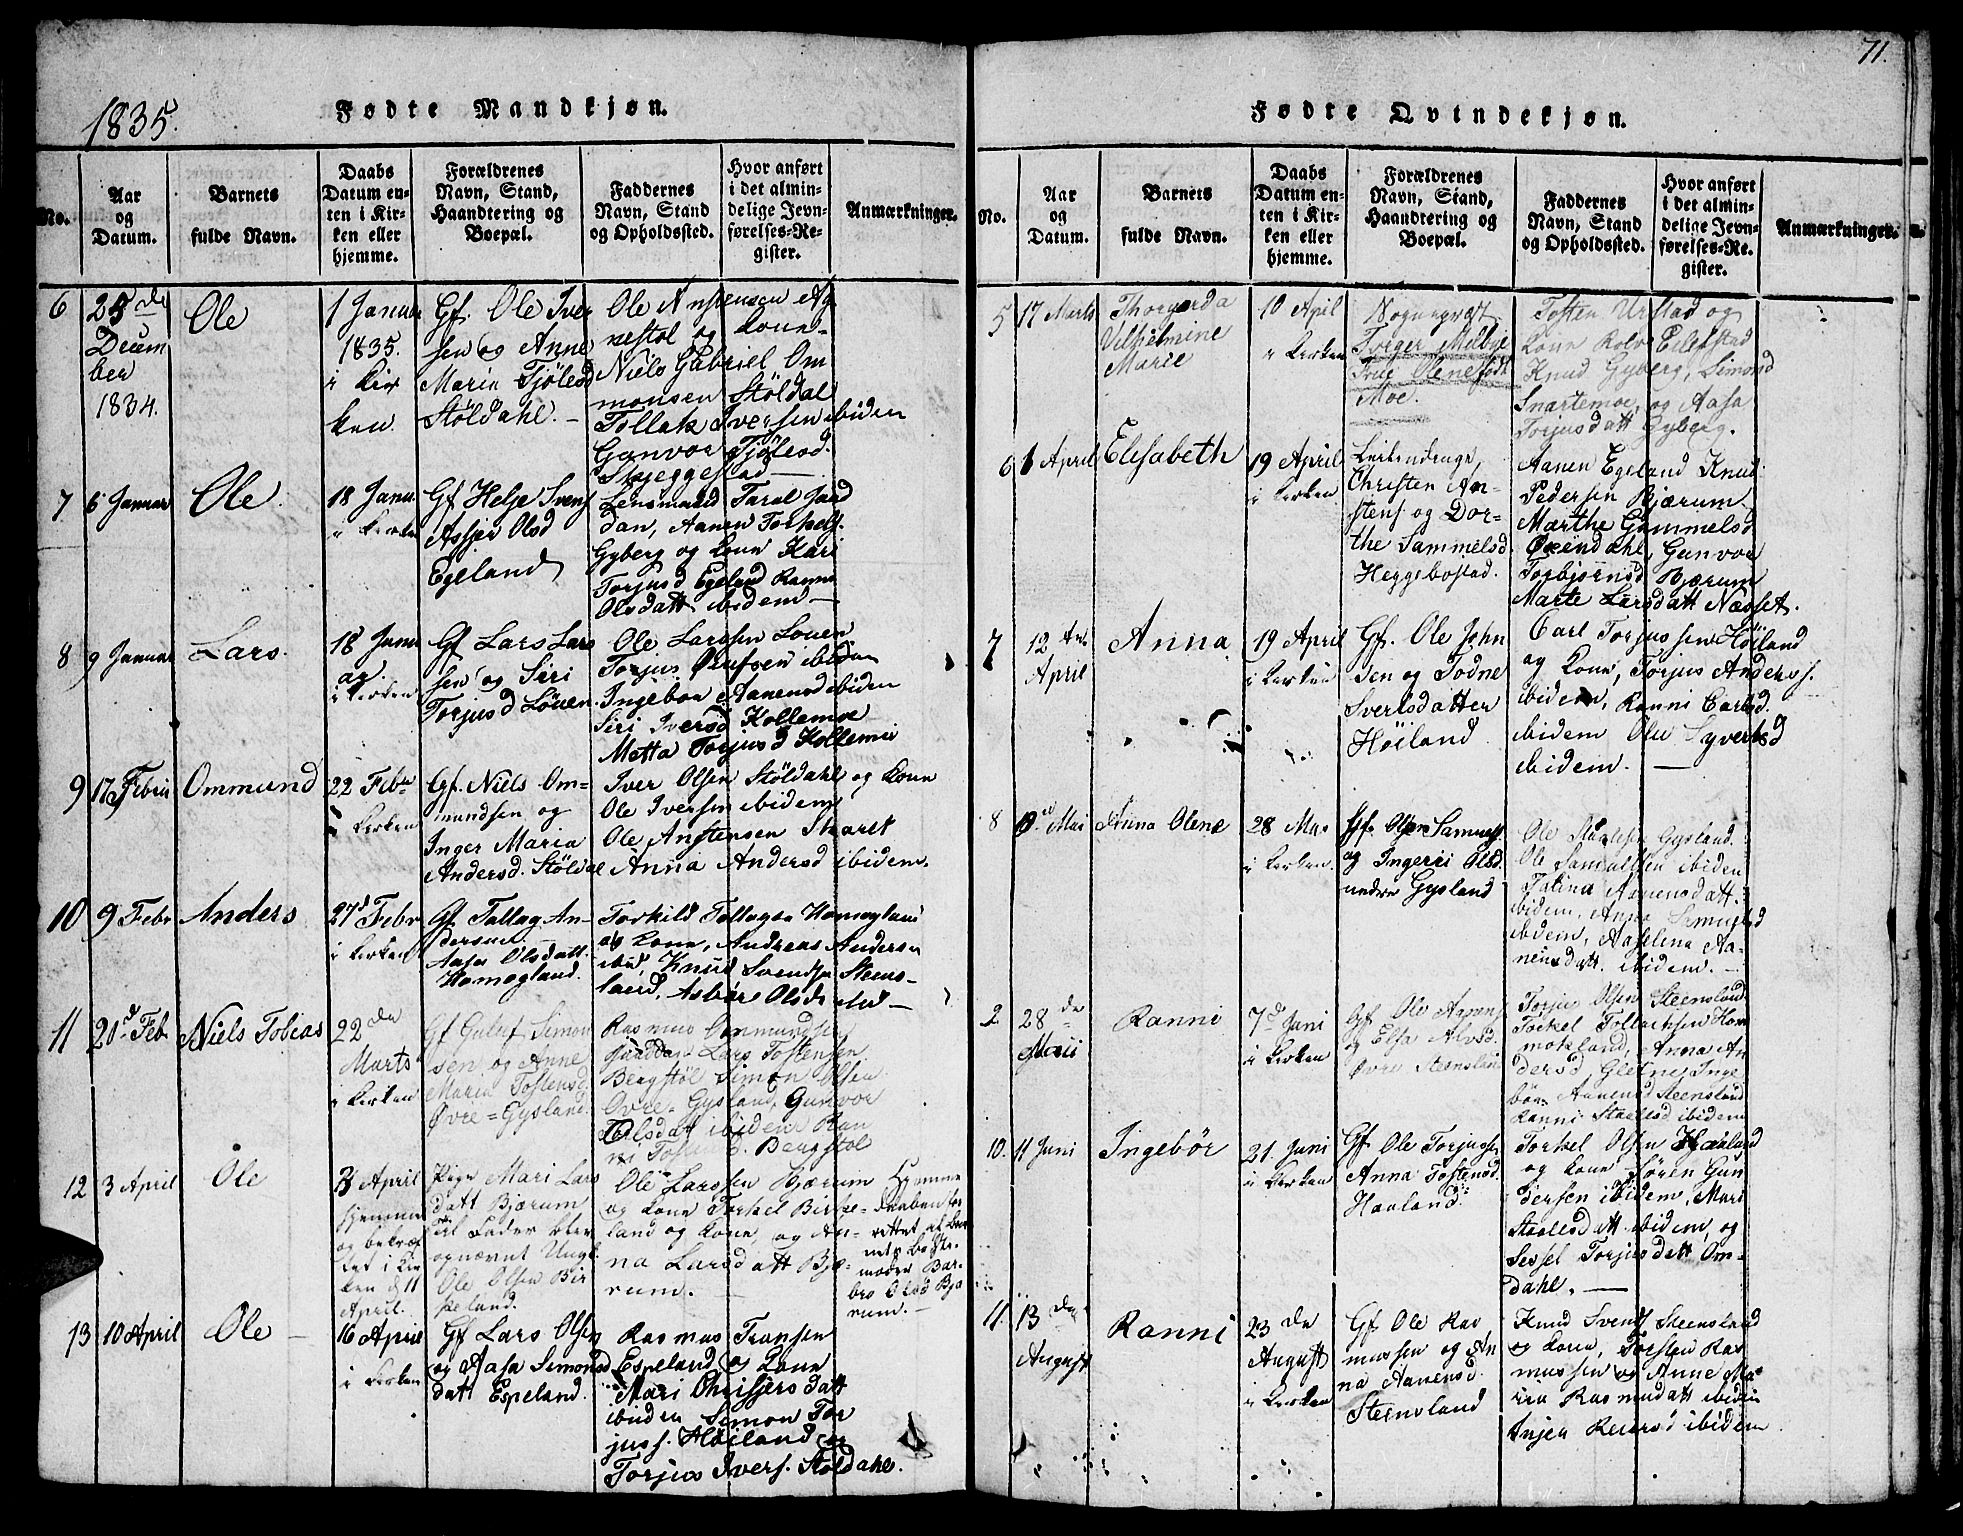 1835.
Fødte Mandkjøn.
No.
Aar
og
Datum.
Barnets
fulde Navn.
Daabs
Datum en-
ten i Kir-
ken eller
hjemme.
Forældrenes
Navn, Stand,
Haandtering og
Boepæl.
Faddernes
Navn, Stand
og Opholdssted.
Hvor anført
i det almin-
delige Jevn-
førelses-Re-
gister.
Anmærkninger.
6
25de
Decem
ber
1834.
Ole
1 Januar
1835.
i Kir
ken.
Gf. Ole Iver
sen og Anne
Maria Tjölesd
Stöldahl. -
Ole Anstensen
nestöl og Kone
Niels Gabriel Om
monsen Stöldal
Tollak Iversen ibiden
Gunvor Tjölesd.
Skjeggestad
7
6 Januar
Ole.
18 Janu.
i Kirken
Gf Helje Svens
Asjer Olsd
Egeland
Lensmand Taral Jaad
dan, Aanen Torkels.
Gyberg og Kone Kari
Torjusd Egeland Ranni
Olsdatt. ibidem -
8
9 Januar
Lars.
18 Janu
ar.
i Kirken
Gf Lars Lars
sen og Siri
Torjusd Löuen.
Ole Larssen Louen
Torjus Olufsen ibiden
Ingeboe Aanensd ibiden
Siri Iversd Kollemoe
Metta Torjusd Kollemoe
9
17 Febru
Ommund
22 Febr
i Kirken
Gf. Niels Om=
mundsen og
Inger Maria
Andersd. Stöldal
Iver Olsen Stöldahl og Kone
Ole Iversen ibidem
Ole Anstensen Skaret
Anna Andersd ibidem.
10
9 Febr
Anders
27d Febr
i Kirken
Gf Tallag An-
dersen
Aasa Olsdatt.
Homogland.
Torkild Tollagsen Homogland
og Kone, Andreas Andersen
ibid, Knud Svendsen Steens-
land, Asbör Olsdt ibid -
11
20d Feb
Niels Tobias
22 de
Marts
i Kirken
Gf Guluf Simon
sen og Anne
Maria Tostensd.
Øvre=Gysland.
Rasmus Ommundsen
Lars Tostensen
Bergstöl Simon Olsen
Ovre=Gysland, Gunvor
Olsdat ibidem Ran
ni Bergstöl
12
3 April
Ole
3 April
hjemme
og bekræf
tet i Kir
ken d 11
April.
Pige Mari Lars
datt Bjærum
til Fader blev
opnævnt Ungk.
Ole Olsen Bir
keland.
Ole Larssen Bjærum
og Kone Torkel Birke-
land og Kone, og An-
na Larsdatt Bjæ-
rum.
Hjemme
Daaben for
rettet af Bar
nets Beste-
moder Bar-
bro Olsd Bjæ
rum. -
13
10 April
Ole
16 April
i Kirken
Gf Lars Olsen
og Aasa Simons
datt Espeland.
Rasmus Transen
Espeland og Kone
Mari Chrisjersdatt
ibiden Simon Tor
juss. Höiland og
Torjus Ivers. Stöldahl.
71.
Fødte Qvindekjøn.
No.
Aar
og
Datum.
Barnets
fulde Navn.
Daabs
Datum en-
ten i Kir-
ken eller
hjemme.
Forældrenes
Navn, Stand,
Haandtering og
Boepæl.
Faddernes
Navn, Stand
og Opholdssted.
Hvor anført
i det almin-
delige Jevn-
førelses-Re-
gister.
Anmærkninger.
5
17 Marts
Thorgerda
Vilhelmine
Marie
10 April
i Kirken
Sognepræst
Torger Melbye
Frue Olene födt
Moe.
Tosten Urstad og
Kone Rolv Eikestad
Knud Gyberg, Simond
Snartemoe, og Aasa
Torjusdatt Gyberg.
6
6 April
Elisabeth
19 April
i Kirken
Christen An-
stens og Dor-
the Sammelsd.
Heggebostad.
Aanen Egeland Knud
Pedersen Bjærum
Marthe Gammelsd
Øxendahl, Gunvor
Torbjörnsd Bjærum
Marte Larsdatt Næsset.
7
12te
April
Anna
19 April
i Kirken
Gf. Ole John
sen og Todne
Sverlsdatter
Höiland
Carl Torjussen Höiland
og Kone, Torjus Anderss.
ibidem, Ranni Carlsd.
ibidem Olu Syvertsd
ibidem. -
8
Mai
Anna Olene
28 Mai
i Kirken.
Gf. Olsen Samuels
og Ingerri Olsd.
nedre Gysland
Ole Gysland.
Ole Samuelssen ibiden
Talina Aanensdatt.
ibidem,
ibidem, Aaselina Aa-
nensdatt. ibidem. -
2
28 de
Maii
Ranni
7d Juni
i Kirken
Gf. Ole Aanens
og Elsa Alvsd.
Øvre Steensland
Torjus Olsen Steensland
Torkel Tollachsen Hom
mokland, Anna An
dersd Gletne Inge
bör Aanensd Steensland
Ranni Staalesd ibidem
10.
11 Juni
Ingebör
21. Juni
i Kirken
Gf. Ole Torjussen
Anna Tostensd.
Haaland.
Torkel Olsen Haaland
og Kone Sören Gun
dersen ibidem, Mari
Staalesdatt ibidem, og
Sessel Torjusdatt Om-
dahl. -
11.
13 de
August
Ranni
23 de
August
i Kirken
Gf. Ole Ras
mussen og An
na Aanensd.
Steensland
Knud Svends Steensland
og Kone, Torsten Ras
mussen og Anne Ma-
ria Rasmusdatt ibiden
Inger Reiersd ibidem